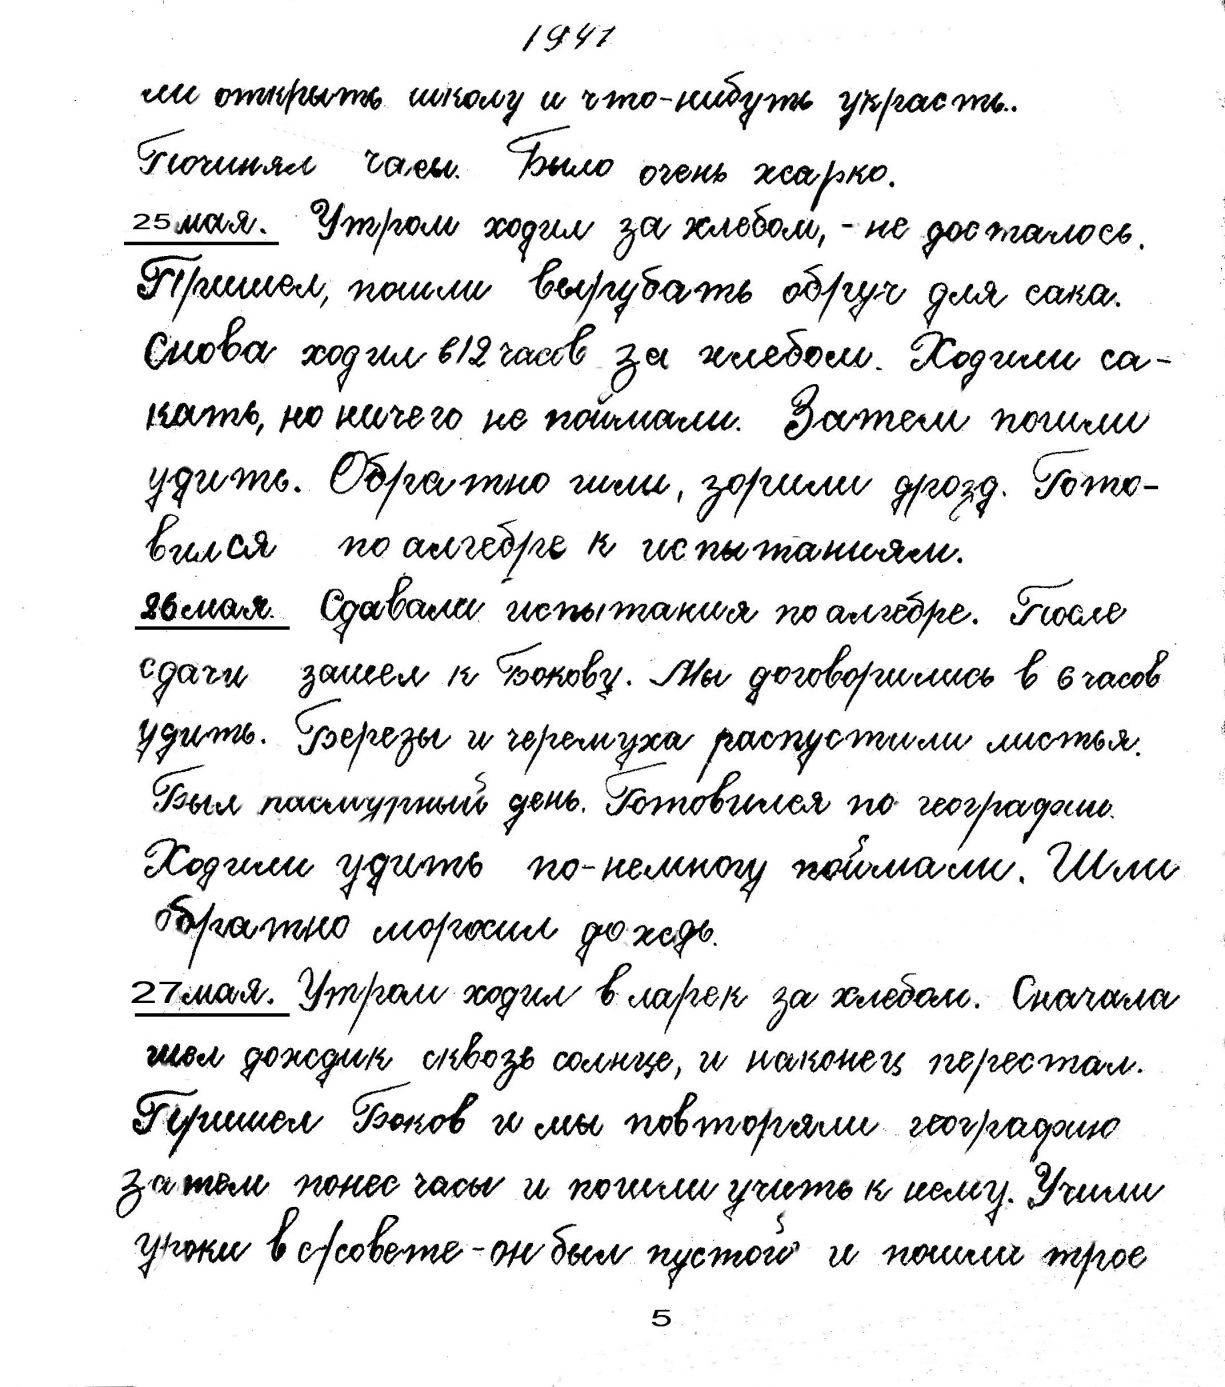 1941
ли открыть школу и что-нибуть украсть..
Починял часы. Было очень жарко.
25 мая. Утром ходил за хлебом, - не досталось.
Пришел, пошли вырубать обруч для сака.
Снова ходил в 12 часов за хлебом. Ходили са-
кать, но ничего не поймали. Затем пошли
удить. Обратно шли, зорили дрозд. Гото-
вился по алгебре к испытаниям.
26 мая. Сдавали испытания по алгебре. После
сдачи зашел к Бокову. Мы договорились в 6 часов
удить. Березы и черемуха распустили листья.
Был пасмурный день. Готовился по географии.
Ходили удить по-немногу поймали. Шли
обратно моросил дождь.
27 мая. Утром ходил в ларек за хлебом. Сначала
шел дождик сквозь солнце, и наконец перестал.
Пришел Боков и мы повторяли географию
затем понес часы и пошли учить к нему. Учили
уроки в с/совете - он был пустой и пошли трое
5